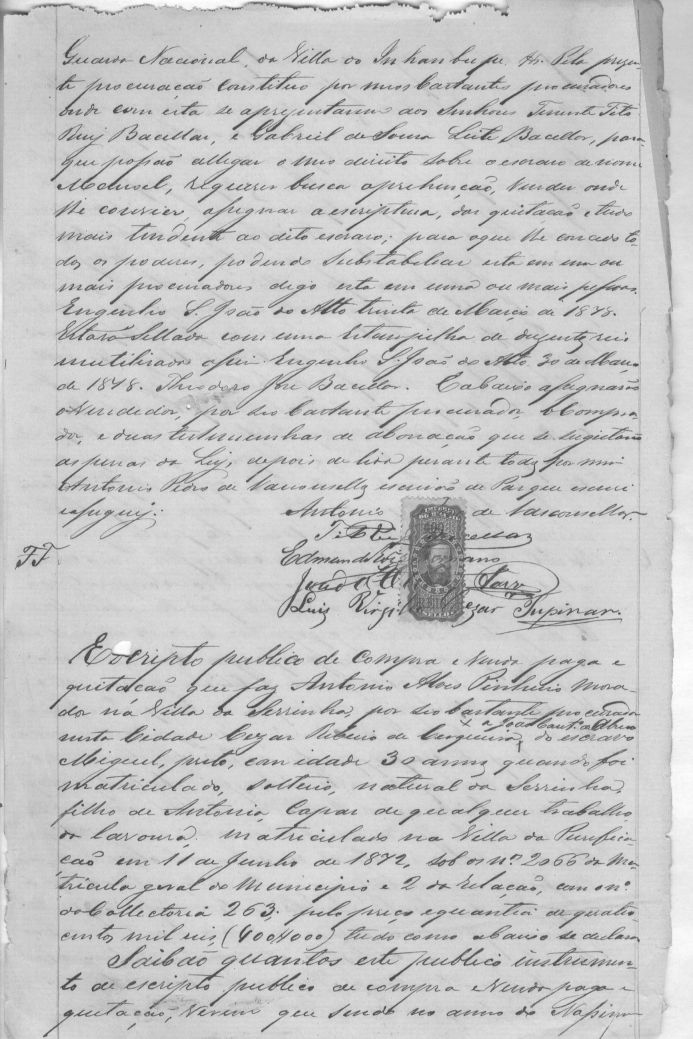 Guarda Nacional, da Villa do Inhambupe. &. Pela prezen-
te procuração constituo por meus bastantes procuradores
onde com esta se aprezentarem aos Senhores Tenente Tito
Ruy Bacellar, e Gabriel de Souza Leite Bacellar, para
que possão allegar o meo direito sobre o escravo de nome
Manoel, requerer busca aprehenção, vender onde
lhe convier, assignar a escriptura, dar quitação e tudo
mais tendente ao dito escravo; para o que lhe concedo to-
dos os poderes, podendo substabelecer esta em um ou
mais procuradores digo esta em uma ou mais pessoas.
Engenho S. João do Alto trinta de Março de 1878.
Estava sellada com uma Estampilha de duzentos reis
inutilizada assim Engenho S. João do Alto 30 de Março
de 1878. Theodoro José Bacellar. E abaixo assignarão
o Vendedor, por seo bastante procurador, o Compra-
dor, e duas testemunhas de abonação que se sugeitarão
as penas da Ley, depois de lida perante todos por mim
Antonio Pedro de Vasconsellos escrivão de Paz que escrevi
e assignei:
Antonio de Vasconsellos.
T. Bacellar
Edmundo
FF
João
Luiz Virgi Cezar Tupinar.
Escripto publico de Compra e Venda paga e
quitação que faz Antonio Alves Pinheiro mora-
dor na Villa da Serrinha, por seo bastante procurador
x a João Baut.a
nesta Cidade Cezar Ribeiro de Cerqueira, x do escravo
Miguel, preto, com idade 30 annos quando foi
matriculado, solteiro, natural da Serrinha,
filho de Antonia, Capaz de qualquer trabalho
da lavoura, matriculado na Villa da Purifica-
cão em 11 de Junho de 1872, sob os nº 2066 da Ma-
tricula geral do Municipio e 2 da relação, com o nº
da Collectoria 263. pelo preço e quantia de quatro
centos mil reis, (400$000) tudo como abaixo se declara
Saibão quantos este publico instrumen-
to de escripto publico de compra e Venda paga e
quitação, virem que sendo no anno do Nascimen-